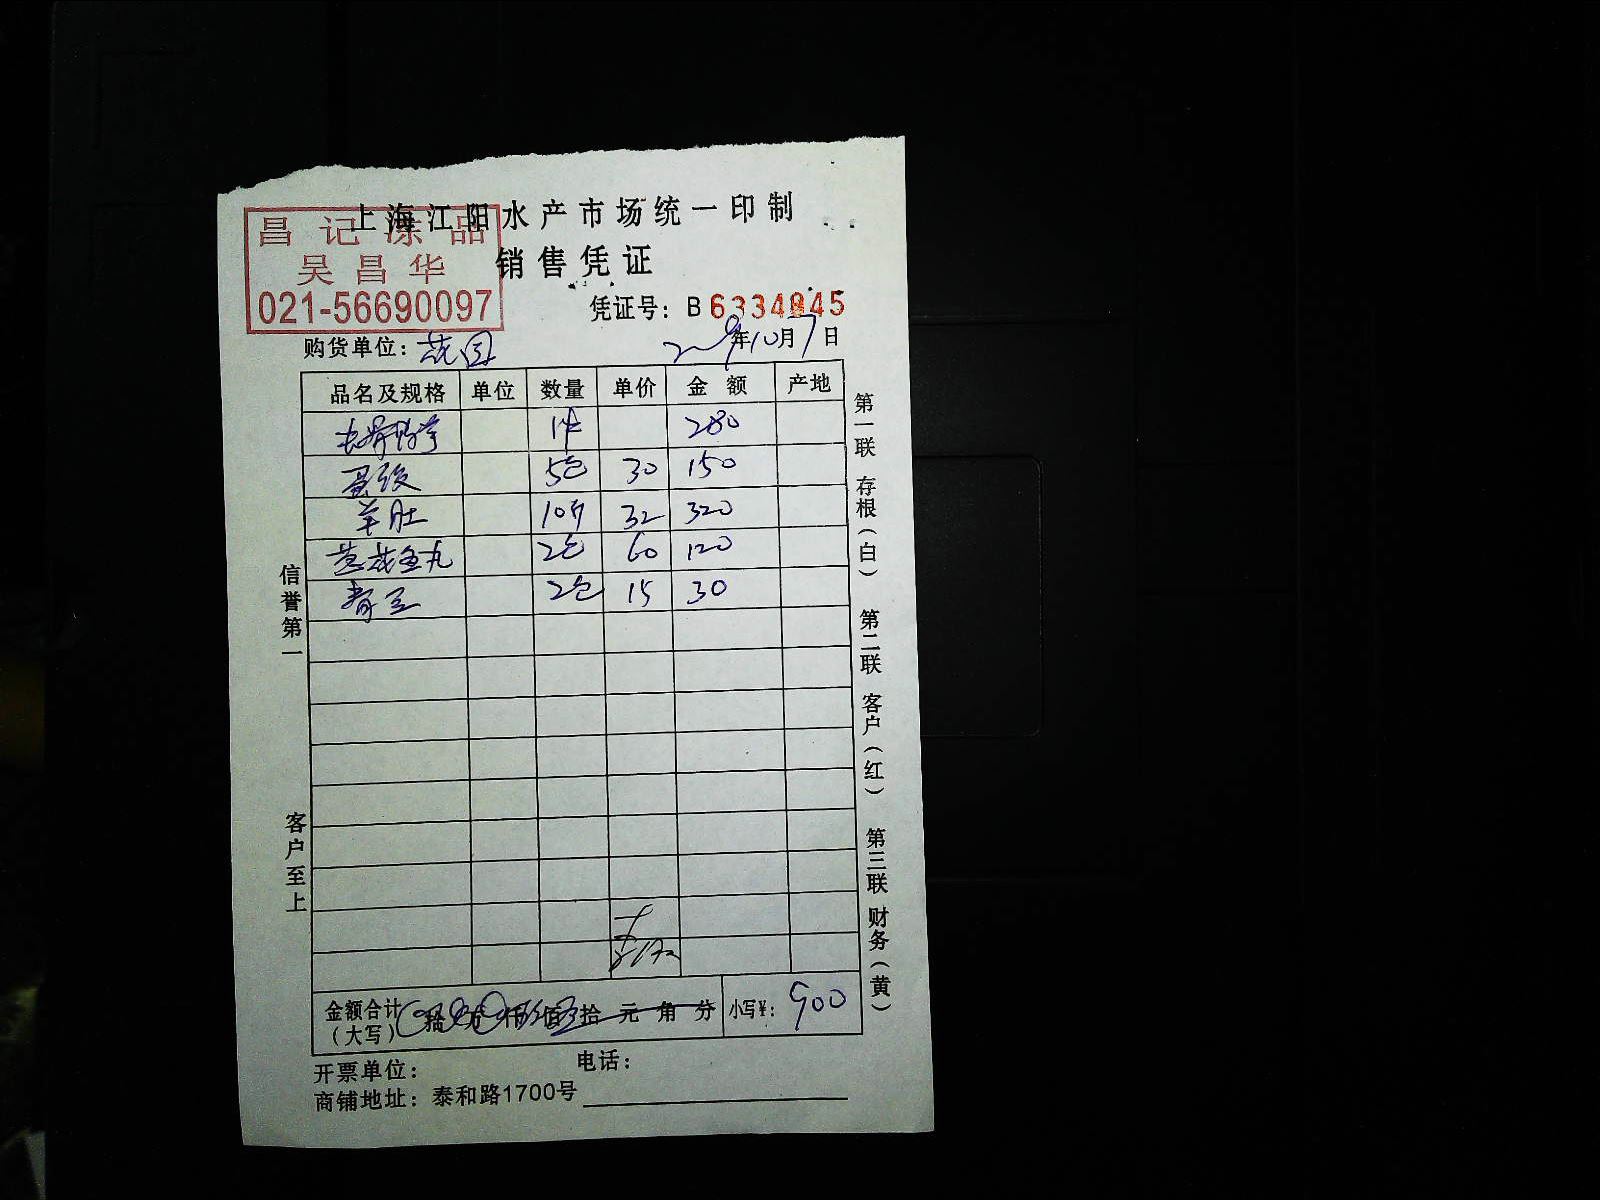 上海江阳水产市场统一印制
昌记冻品
吴昌华
021-56690097
销售凭证
凭证号：B 6334845
购货单位：
2009年10月7日
品名及规格 单位 数量 单价 金额 产地
1件 280
蛋饺 5包 30 150
羊肚 10斤 32 320
鱼丸 2包 60 120
青豆 2包 15 30
信誉第一
客户至上
第一联 存根（白） 第二联 客户（红） 第三联 财务（黄）
金额合计（大写） 拾 万 仟 佰 拾 元 角 分 小写¥：900
开票单位： 电话：
商铺地址：泰和路1700号